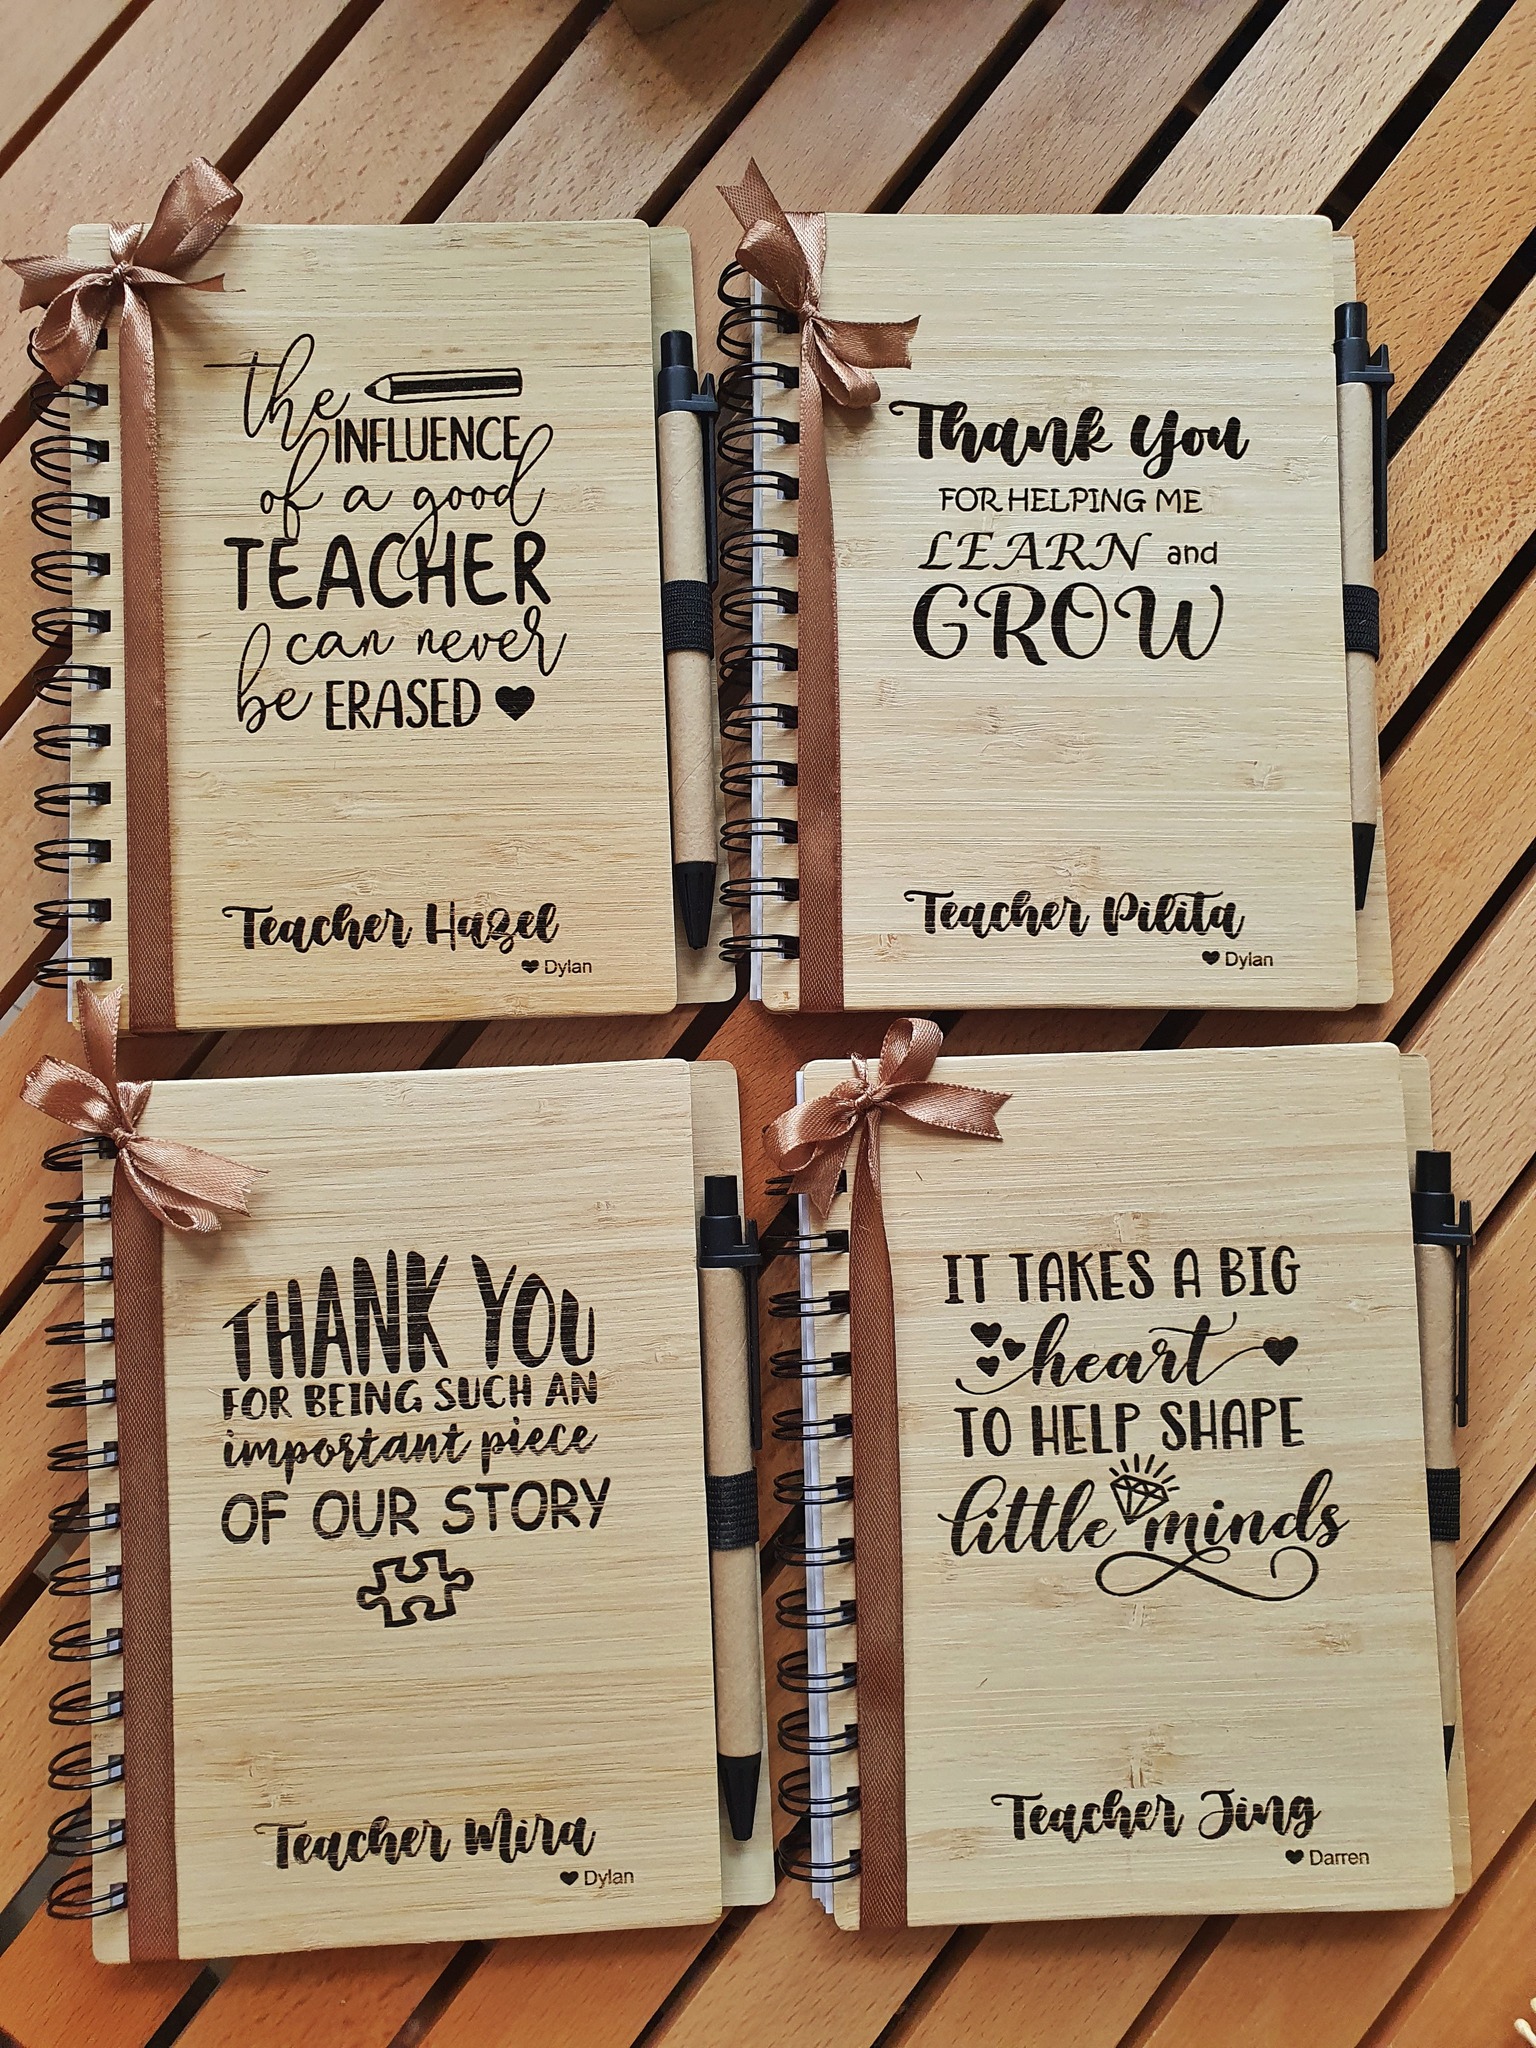 the
INFLUENCE
of a good
TEACHER
can never
be ERASED
Teacher Hazel
Dylan
Thank You
FOR HELPING ME
LEARN and
GROW
Teacher Pilita
Dylan
THANK YOU
FOR BEING SUCH AN
important piece
OF OUR STORY
Teacher Mira
Dylan
IT TAKES A BIG
heart
TO HELP SHAPE
little minds
Teacher Jing
Darren